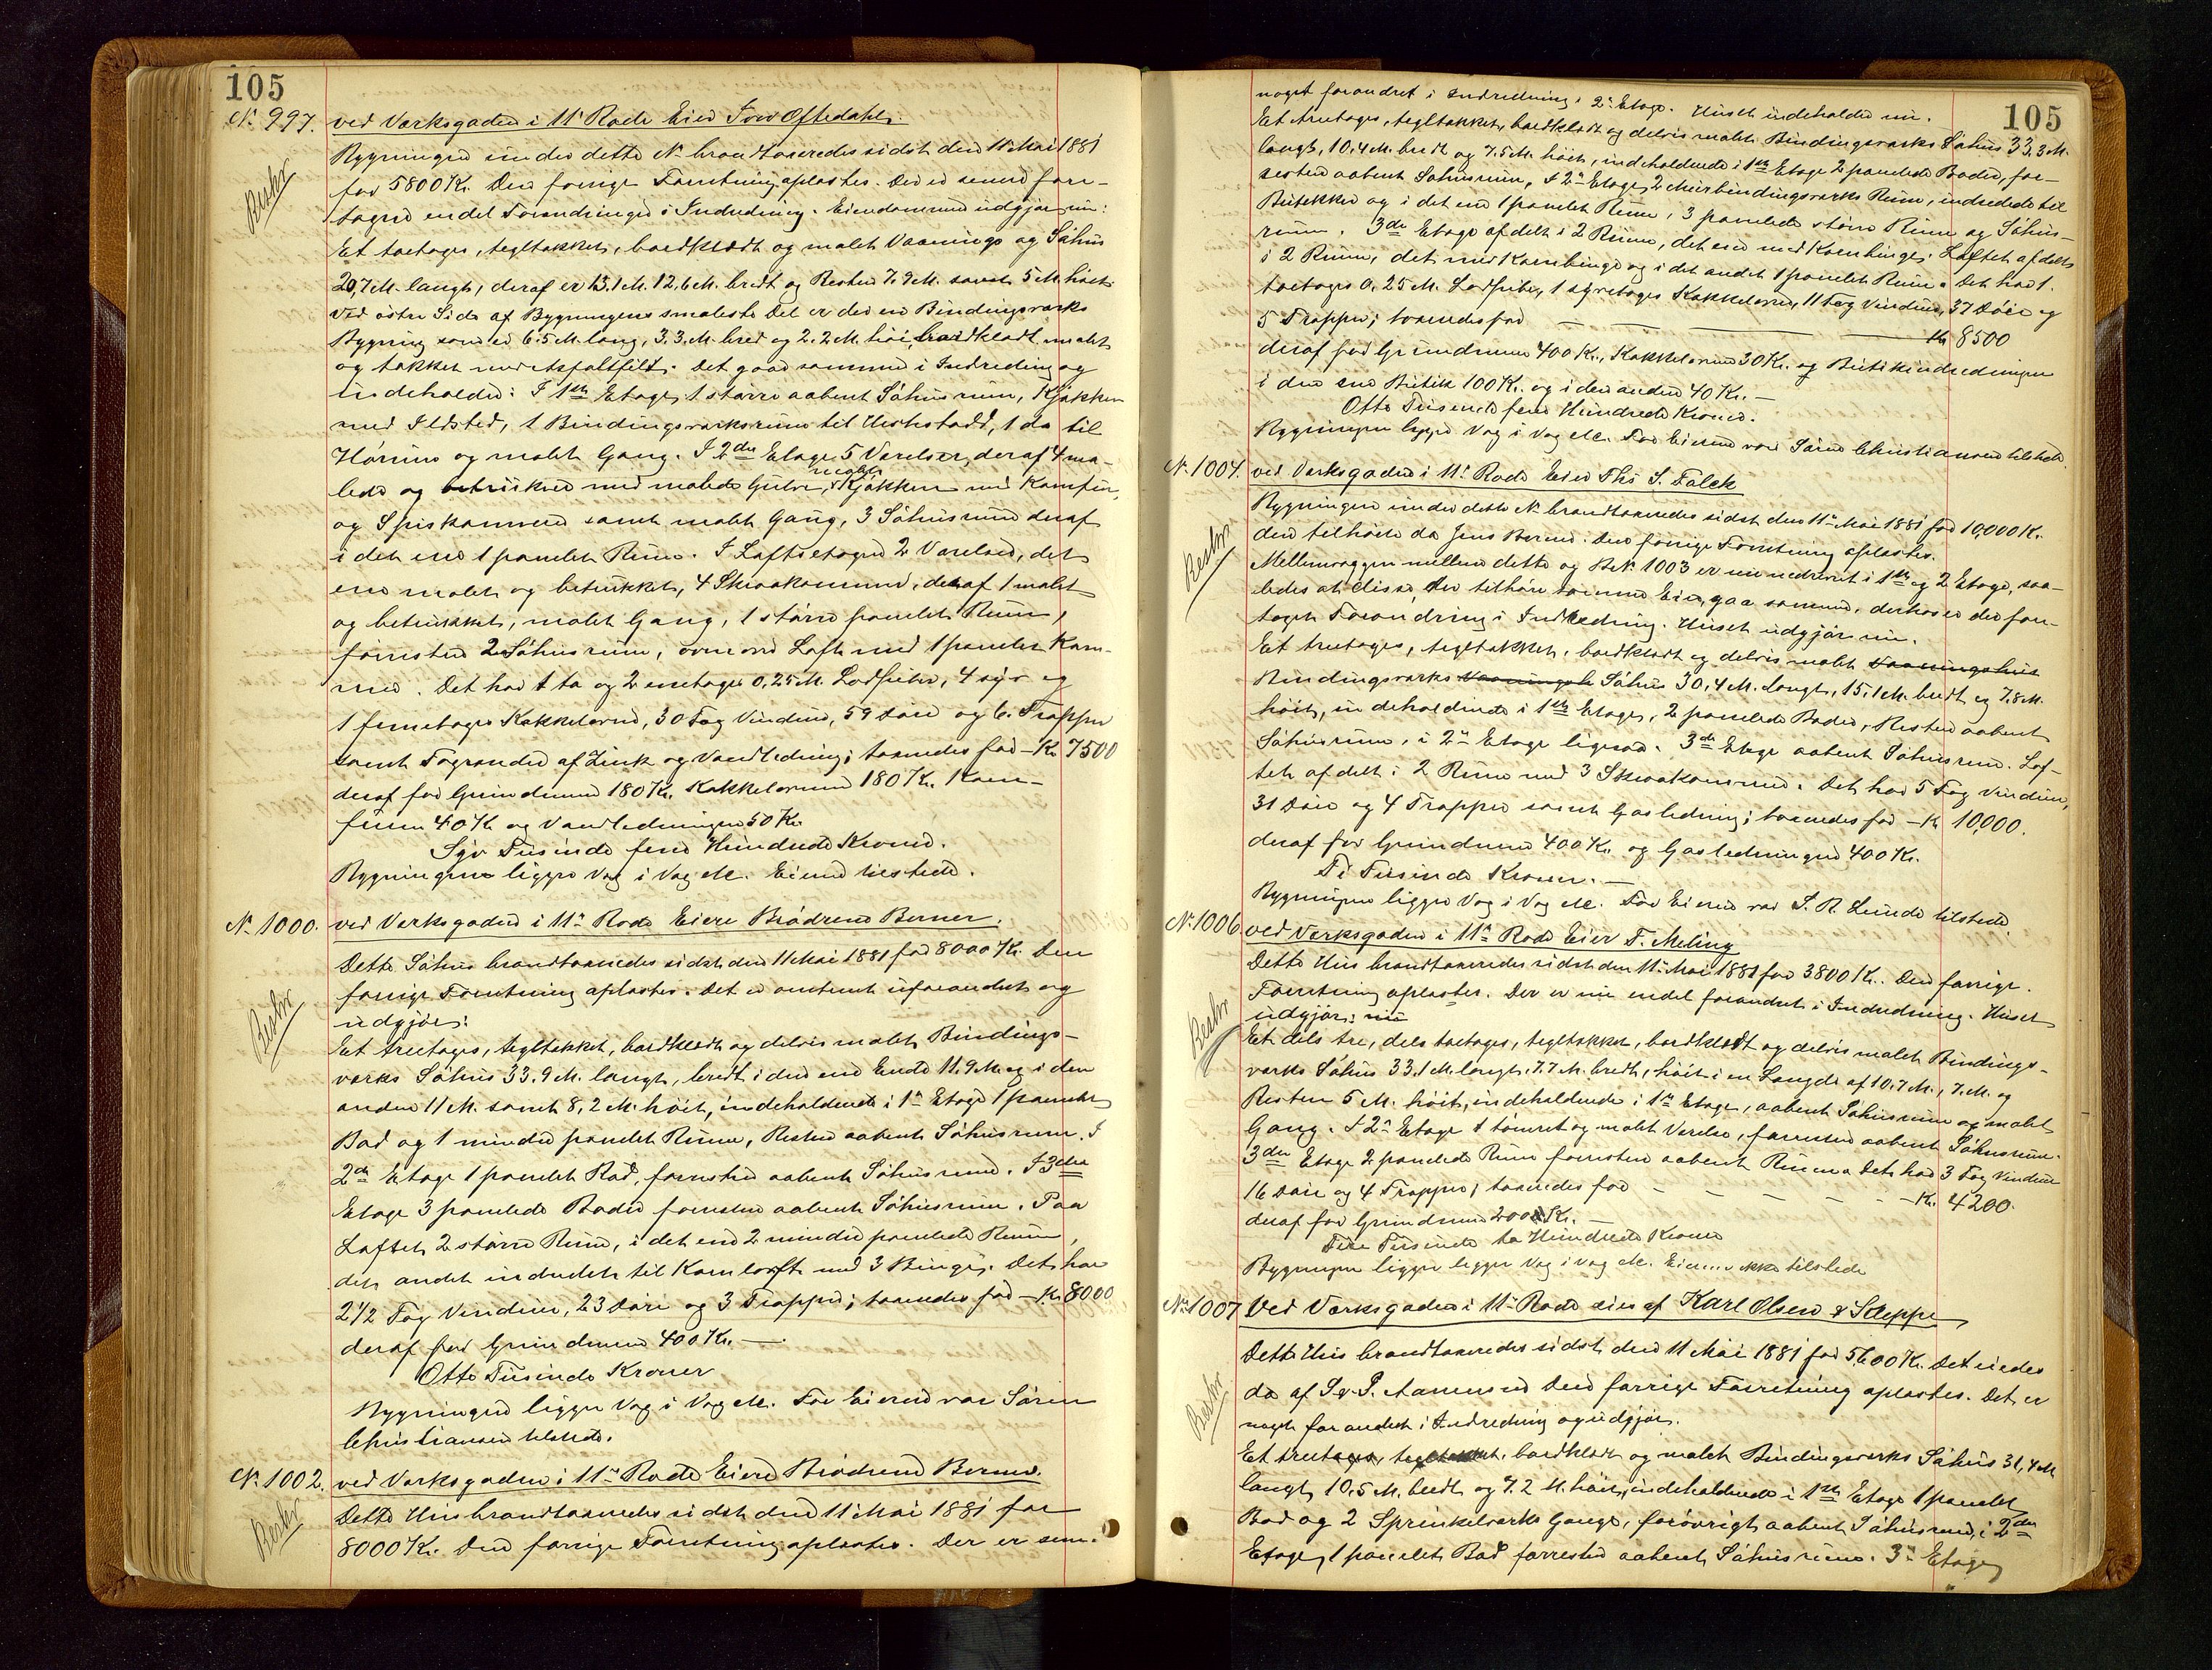 105
No 997. ved Værksgaden i 11te Rode Eier Tore Oftedahl.
Bygningen under dette No brandtaxeredes sidst den 11te Mai 1881
Beskr
for 5800 Kr. Den forrige Forretning oplæstes. Der er senere fore-
tagne endel Forandringer i Indredning. Eiendommen udgjør nu:
Et toetages, tegltækket, bordklædt og malet Vaanings og Søhus
20,7 M. langt, deraf er 13.1 M. 12,6 M. bredt og Resten 7.9 M. samt 5 M. høit.
Ved østre Side af Bygningens smaleste Del er der en Bindingsværks
Bygning som er 6.5 M. lang, 3.3 M. bred og 2.2 M. høi, bordklædt malet
og tækket med Asfaltfilt. Det gaar sammen i Indredning og
indeholder: I 1ste Etage, 1 større aabent Søhusrum, Kjøkken
med Ildsted, 1 Bindingsværksrum til Verksted, 1 do til
Hønse og malet Gang. I 2den Etage 5 Værelser, deraf 4 ma-
lede og betrukne med malede Gulve, malet Kjøkken med Komfur,
og Spiskammer samt malet Gang, 3 Søhusrum deraf
i det ene 1 panelet Rum. I Loftsetagen 2 Værelser, det
ene malet og betrukket, 4 Skraakammere, deraf 1 malet
og betrukket, malet Gang, 1 større panelet Rum,
forresten 2 Søhusrum, overover Loft med 1 panelet Kam-
mer. Det har 1 to og 2 enetages 0,25 M. Lodpiber, 4 syv og
1 femetages Kakkelovne, 30 Fag Vinduer, 59 Døre og 6 Trapper
samt Tagrender af Zink og Vandledning; taxeredes for - Kr. 7500
deraf for Grundmuren 180 Kr. Kakkelovnene 180 Kr. Kom-
furen 40 Kr. og Vandledningen 50 Kr.
Syv Tusinde fem Hundrede Kroner.
Bygningen ligger Væg i Væg etc. Eieren tilstede.
No 1000. ved Værksgaden i 11te Rode Eiere Brødrene Berner.
Dette Søhus brandtaxeredes sidst den 11 Mai 1881 for 8000 Kr. Den
forrige Forretning oplæstes. Det er omtrent uforandret og
Beskr
udgjør:
Et treetages, tegltækket, bordklædt og delvis malet Bindings-
værks Søhus 33.9 M. langt, bredt i den ene Ende 11.9 M. og i den
anden 11 M. samt 8,2 M. høit, indeholdende i 1ste Etage 1 panelet
Bod og 1 mindre panelet Rum, Resten aabent Søhusrum. I
2den Etage 1 panelet Bod, forresten aabent Søhusrum. I 3die
Etage 3 panelede Boder forresten aabent Søhusrum. Paa
Loftet 2 større Rum, i det ene 2 mindre panelede Rum,
det andet indredet til Kornloft med 3 Binger. Det har
2 1/2 Fag Vinduer, 23 Døre og 3 Trapper; taxeredes for - Kr. 8000
deraf for Grundmuren 400 Kr. —
Otte Tusinde Kroner
Bygningen ligger Væg i Væg etc. For Eierne var Søren
Christiansen tilstede.
No 1002. ved Værksgaden i 11te Rode Eiere Brødrene Berner.
Dette Hus brandtaxeredes sidst den 11 Mai 1881 for
Beskr
8000 Kr. Den forrige Forretning oplæstes. Der er sen.
105
noget forandret i Indredning i 2den Etage. Huset indeholder nu.
Et treetages, tegltækket, bordklædt og delvis malet Bindingsværks Søhus 33,3 M.
langt, 10,4 M. bredt og 7.5 M. høit, indeholdende i 1ste Etage 2 panelede Boder, for-
resten aabent Søhusrum, I 2den Etage, 2 Murbindingsværks Rum, indredede til
Butikker og i det ene 1 panelet Rum, 3 panelede større Rum og Søhus-
rum. 3die Etage afdelt i 2 Rum, det ene med Kornbinger. Loftet afdelt
i 2 Rum, det med Kornbinge og i det andet 1 panelet Rum. Det har 1
toetages 0,25 M. Lodpibe, 1 syvetages Kakkelovn, 11 Fag Vinduer, 37 Døre og
5 Trapper; taxeredes for — — — Kr 8500
deraf for Grundmuren 400 Kr., Kakkelovnen 30 Kr. og Butikindredningen
i den ene Butik 100 Kr. og i den anden 40 Kr. —
Otte Tusinde fem Hundrede Kroner.
Bygningen ligger Væg i Væg etc. For Eierne var Søren Christiansen tilstede.
No 1004. ved Værksgaden i 11te Rode Eier Ths S. Falck
Bygningen under dette No brandtaxeredes sidst den 11te Mai 1881 for 10,000 Kr.
den tilhørte da Jens Berner. Den forrige Forretning oplæstes.
Beskr
Mellemvæggen mellem dette og B.No 1003 er nu nedrevet i 1ste og 2 Etage, saa-
ledes at disse, der tilhøre samme Eier, gaa sammen, derhos er der fore-
taget Forandring i Indredning. Huset udgjør nu.
Et treetages, tegltækket, bordklædt og delvis malet Vaaningshus
Bindingsværks Vaaningsh Søhus 30,4 M. langt, 15,1 M. bredt og 7.8 M.
høit, indeholdende i 1ste Etage, 2 panelede Boder, Resten aabent
Søhusrum, i 2den Etage ligesaa. 3die Etage aabent Søhusrum. Lof-
tet afdelt i 2 Rum med 3 Skraakammere. Det har 5 Fag Vinduer,
31 Døre og 4 Trapper samt Gasledning; taxeredes for - Kr 10,000.
deraf for Grundmuren 400 Kr. og Gasledningen 400 Kr.
Ti Tusinde Kroner. —
Bygningen ligger Væg i Væg etc. For Eieren var S. R. Lunde tilstede.
No 1006 ved Værksgaden i 11te Rode Eier T. Meling
Dette Hus brandtaxeredes sidst den 11te Mai 1881 for 3800 Kr. Den forrige
Forretning oplæstes. Der er nu endel forandret i Indredning. Huset
Beskr
udgjør: nu
Et dels tre, dels toetages, tegltækket, bordklædt og delvis malet Bindings-
værks Søhus 33.1 M. langt, 7.7 M. bredt, høit i en Længde af 10.7 M., 7. M. og
Resten 5 M. høit, indeholdende i 1ste Etage, aabent Søhusrum og malet
Gang. I 2den Etage 1 tømret og malet Værelse, forresten aabent Søhusrum.
3die Etage 2 panelede Rum forresten aabent Rum. Det har 3 Fag Vinduer
16 Døre og 4 Trapper; taxeredes for — — — — — Kr. 4200.
deraf for Grundmuren 200 Kr. —
Fire Tusinde to Hundrede Kroner
Bygningen ligger ligger Væg i Væg etc. Eieren ikke tilstede
No 1007 Ved Værksgaden i 11te Rode eies af Karl Olsen & Kleppe
Dette Hus brandtaxeredes sidst den 11 Mai 1881 for 5600 Kr. Det eiedes
da af S. & P. Aanensen Den forrige Forretning oplæstes. Det er
Beskr
noget forandret i Indredning og udgjør.
Et treetages, tegltækket, bordklædt og malet Bindingsværks Søhus 31,4 M
langt, 10.5 M. bredt og 7.2 M. høit, indeholdende i 1ste Etage 1 panelet
Bod og 2 Sprinkelværks Gange, forøvrigt aabent Søhusrum, i 2den
Etage, 1 panelet Bod forresten aabent Søhusrum. 3die Etage